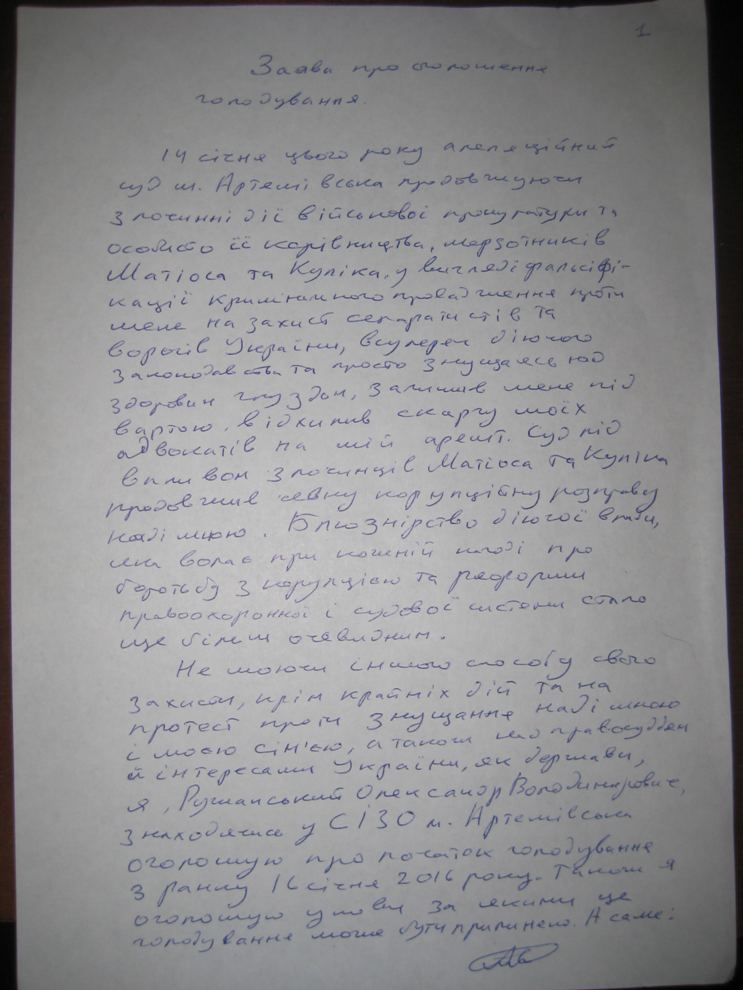 1
Заява про оголошення
голодування.
14 січня цього року апеляційний
суд м. Артемівська продовжуючи
злочинні дії військової прокуратури та
особисто її керівництва, мерзотників
Матіоса та Куліка, у вигляді фальсіфі-
кації кримінального провадження проти
мене на захист сепаратистів та
ворогів України, всупереч діючого
законодавства та просто знущаясь над
здоровим глуздом, залишив мене під
вартою, відхилив скаргу моїх
адвокатів на мій арешт. Суд під
впливом злочинців Матіоса та Куліка
продовжив певну корупційну розправу
наді мною. Блюзнірство діючої влади,
яка волає при кожній нагоді про
боротьбу з корупцією та реформи
правоохоронної і судової системи стало
ще більш очевидним.
Не маючи іншого способу свого
захисту, крім крайніх дій та на
протест проти знущання наді мною
і моєю сім'єю, а також над правосуддям
й інтересами України, як держави,
я, Олександр Володимирович,
знаходячись у СІЗО м. Артемівська
оголошую про початок голодування
з ранку 16 січня 2016 року. Також я
оголошую умови за якими це
голодування може бути припинено. А саме: